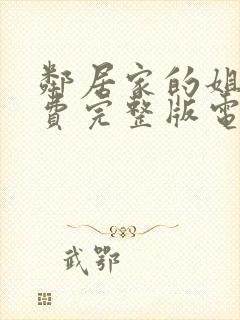 鄰居家的姐
費完整版電
武鄂